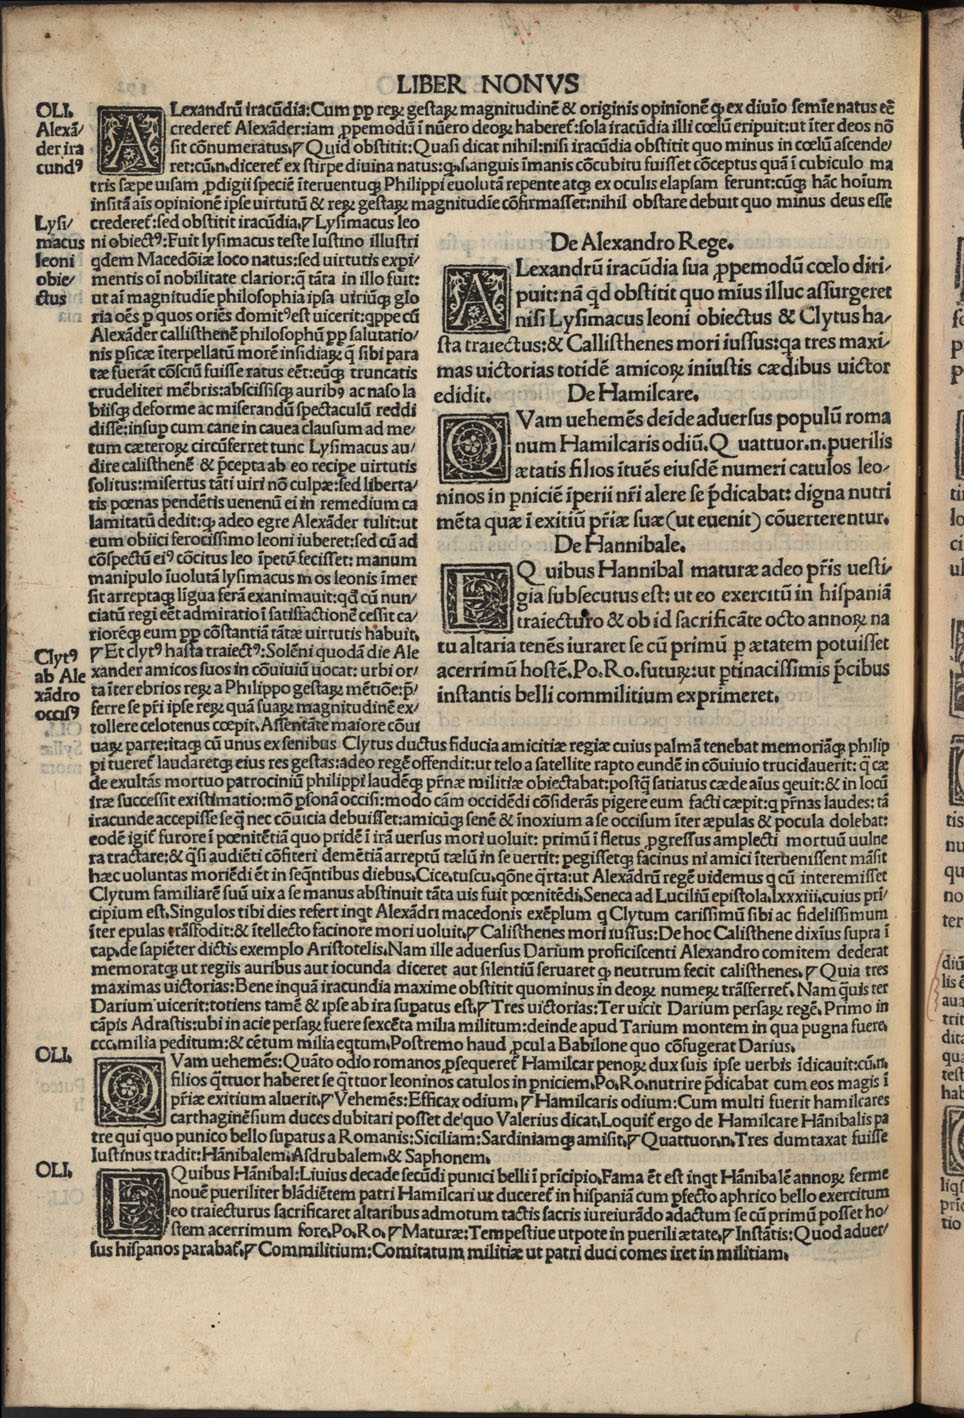 LIBER NONVS
OLI.
Alexā/
der ira
cundꝰ
ALexandrū iracūdia: Cum ꝓp reꝝ gestaꝝ magnitudinē & originis opinionē ꝙ ex diuīo semīe natus eē
crederet᷑ Alexāder: iam ꝓpemodū ī nūero deoꝝ haberet᷑: sola iracūdia illi cœlū eripuit: ut īter deos nō
sit cōnumeratus. ⁋ Quid obstitit: Quasi dicat nihil: nisi iracūdia obstitit quo minus in cœlū ascende/
ret: cū.n. diceret᷑ ex stirpe diuina natus: ꝙ sanguis īmanis cōcubitu fuisset cōceptus quā ī cubiculo ma
tris sæpe uisam ꝓdigii speciē īteruentuqꝫ Philippi euolutā repente atqꝫ ex oculis elapsam ferunt: cūqꝫ hāc hoīum
insitā aīs opinionē ipse uirtutū & reꝝ gestaꝝ magnitudīe cōfirmasset: nihil obstare debuit quo minus deus esse
Lysi/
macus
leoni
obie/
ctus
crederet᷑: sed obstitit iracūdia. ⁋ Lysimacus leo
ni obiectꝰ: Fuit lysimacus teste Iustino illustri
qdem Macedōiæ loco natus: sed uirtutis expi/
mentis oī nobilitate clarior: q̄ tāta in illo fuit:
ut aī magnitudīe philosophia ipsa uiriūqꝫ glo
ria oēs ꝑ quos oriēs domitꝰ est uicerit: qppe cū
Alexāder callisthenē philosophū ꝓp salutatio/
nis ꝑsicæ īterpellatū morē insidiaꝝ q̄ sibi para
tæ fuerāt cōsciū fuisse ratus eēt: eūqꝫ truncatis
crudeliter mēbris: abscissisqꝫ auribꝰ ac naso la
biisqꝫ deforme ac miserandū spectaculū reddi
disse: insuꝑ cum cane in cauea clausum ad me/
tum cæteroꝝ circūferret tunc Lysimacus au/
dire calisthenē & p̄cepta ab eo recipe uirtutis
solitus: misertus tāti uiri nō culpæ: sed liberta/
tis pœnas pendētis uenenū ei in remedium ca
lamitatū dedit: ꝙ adeo egre Alexāder tulit: ut
eum obiici ferocissimo leoni iuberet: sed cū ad
cōspectū eiꝰ cōcitus leo īpetū fecisset: manum
manipulo īuolutā lysimacus in os leonis īmer
sit arreptaqꝫ ligua ferā exanimauit: qd̄ cū nun/
ciatū regi eēt admiratio ī satisfactionē cessit ca/
riorēqꝫ eum ꝓp cōstantiā tātæ uirtutis habuit.
Clytꝰ
ab Ale
xādro
occisꝰ
⁋ Et clytꝰ hasta traiectꝰ: Solēni quodā die Ale
xander amicos suos in cōuiuiū uocat: urbi or/
ta īter ebrios reꝝ a Philippo gestaꝝ mētiōe: p̄/
ferre se pr̄i ipse reꝝ quā suaꝝ magnitudinē ex/
tollere celotenus cœpit. Assentāte maiore cōui
De Alexandro Rege.
ALexandrū iracūdia sua ꝓpemodū cœlo diri/
puit: nā qd̄ obstitit quo mīus illuc assurgeret
nisi Lysimacus leoni obiectus & Clytus ha/
sta traiectus: & Callisthenes mori iussus: qa tres maxi/
mas uictorias totidē amicoꝝ iniustis cædibus uictor
edidit.
De Hamilcare.
QVam uehemēs deīde aduersus populū roma
num Hamilcaris odiū. Quattuor.n. puerilis
ætatis filios ītuēs eiusdē numeri catulos leo/
ninos in ꝑniciē īperii nr̄i alere se p̄dicabat: digna nutri
mēta quæ ī exitiū pr̄iæ suæ (ut euenit) cōuerterentur.
De Hannibale.
EQuibus Hannibal maturæ adeo pr̄is uesti/
gia subsecutus est: ut eo exercitū in hispaniā
traiecturo & ob id sacrificāte octo annoꝝ na
tu altaria tenēs iuraret se cū primū ꝑ ætatem potuisset
acerrimū hostē. Po. Ro. futuꝝ: ut ꝑtinacissimis p̄cibus
instantis belli commilitium exprimeret.
uaꝝ parte: itaqꝫ cū unus ex senibus Clytus ductus fiducia amicitiæ regiæ cuius palmā tenebat memoriāqꝫ philip
pi tueret᷑ laudaretqꝫ eius res gestas: adeo regē offendit: ut telo a satellite rapto eundē in cōuiuio trucidauerit: q̄ cæ
de exultās mortuo patrociniū philippi laudēqꝫ pr̄næ militiæ obiectabat: postq̄ satiatus cæde aīus qeuit: & in locū
iræ successit existimatio: mō ꝑsonā occisi: modo cām occidēdi cōsiderās pigere eum facti cæpit: q pr̄nas laudes: tā
iracunde accepisse se q̄ nec cōuicia debuisset: amicūqꝫ senē & īnoxium a se occisum īter æpulas & pocula dolebat:
eodē igit᷑ furore ī pœnitētiā quo pridē ī irā uersus mori uoluit: primū ī fletus ꝓgressus amplecti mortuū uulne
ra tractare: & q̄si audiēti cōfiteri demētiā arreptū tælū in se uertit: ꝑegissetqꝫ facinus ni amici īteruenissent māsit
hæc uoluntas moriēdi ēt in seq̄ntibus diebus. Cice. tuscu. qōne q̄rta: ut Alexādrū regē uidemus q cū interemisset
Clytum familiarē suū uix a se manus abstinuit tāta uis fuit pœnitēdi. Seneca ad Luciliū epistola. lxxxiii. cuius pri/
cipium est. Singulos tibi dies refert inqt Alexādri macedonis exēplum q Clytum carissimū sibi ac fidelissimum
īter epulas trāsfodit: & ītellecto facinore mori uoluit. ⁋ Calisthenes mori iussus: De hoc Calisthene diximus supra ī
cap. de sapiēter dictis exemplo Aristotelis. Nam ille aduersus Darium proficiscenti Alexandro comitem dederat
memoratqꝫ ut regiis auribus aut iocunda diceret aut silentiū seruaret ꝙ neutrum fecit calisthenes. ⁋ Quia tres
maximas uictorias: Bene inquā iracundia maxime obstitit quominus in deoꝝ numeꝝ trāsferret᷑. Nam q̄uis ter
Darium uicerit: totiens tamē & ipse ab ira suꝑatus est. ⁋ Tres uictorias: Ter uicit Darium persaꝝ regē. Primo in
cāpis Adrastis: ubi in acie persaꝝ fuere sexcēta milia militum: deinde apud Tarium montem in qua pugna fuere.
cccc. milia peditum: & cētum milia eqtum. Postremo haud ꝓcul a Babilone quo cōfugerat Darius.
OLI.
QVam uehemēs: Quāto odio romanos ꝓsequeret᷑ Hamilcar penoꝝ dux suis ipse uerbis īdicauit: cū.n.
filios q̄ttuor haberet se q̄ttuor leoninos catulos in ꝑniciem. Po. Ro. nutrire p̄dicabat cum eos magis ī
pr̄iæ exitium aluerit. ⁋ Vehemēs: Efficax odium. ⁋ Hamilcaris odium: Cum multi fuerit hamilcares
carthaginēsium duces dubitari posset de quo Valerius dicat. Loquit᷑ ergo de Hamilcare Hānibalis pa
tre qui quo punico bello suꝑatus a Romanis: Siciliam: Sardiniamqꝫ amisit. ⁋ Quattuor.n. Tres dumtaxat fuisse
Iustinus tradit: Hānibalem. Asdrubalem. & Saphonem.
OLI.
EQuibus Hānibal: Liuius decade secūdi punici belli ī prīcipio. Fama ēt est inqt Hānibalē annoꝝ ferme
nouē pueriliter blādiētem patri Hamilcari ut duceret᷑ in hispaniā cum ꝑfecto aphrico bello exercitum
eo traiecturus sacrificaret altaribus admotum tactis sacris iureiurādo adactum se cū primū posset ho/
stem acerrimum fore. Po. Ro. ⁋ Maturæ: Tempestiue utpote in puerili ætate. ⁋ Instātis: Quod aduer/
sus hispanos parabat᷑. ⁋ Commilitium: Comitatum militiæ ut patri duci comes iret in militiam.